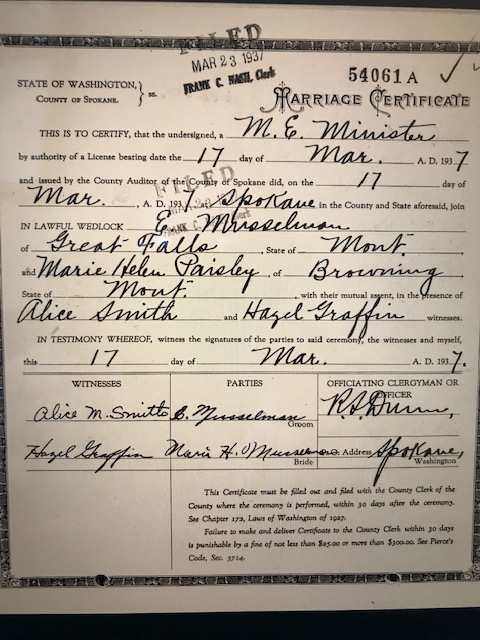 FILED
MAR 23 1937
FRANK C. NASH, Clerk
54061 A
STATE OF WASHINGTON,
COUNTY OF SPOKANE. } ss.
MARRIAGE CERTIFICATE
THIS IS TO CERTIFY, that the undersigned, a M. E. Minister
by authority of a License bearing date the 17 day of Mar. A. D. 1937
and issued by the County Auditor of the County of Spokane did, on the 17 day of
FILED
Mar. , A. D. 1937 at Spokane in the County and State aforesaid, join
IN LAWFUL WEDLOCK E. Musselman
of Great Falls , State of Mont.
and Marie Helen Paisley , of Browning
State of Mont. , with their mutual assent, in the presence of
Alice Smith and Hazel Graffin witnesses.
IN TESTIMONY WHEREOF, witness the signatures of the parties to said ceremony, the witnesses and myself,
this 17 day of Mar. A. D. 1937.
WITNESSES PARTIES OFFICIATING CLERGYMAN OR OFFICER
Alice M. Smith E. Musselman Groom R. S. Dunn,
Hazel Graffin Marie H. Musselman Bride P. O. Address Spokane, Washington
This Certificate must be filled out and filed with the County Clerk of the
County where the ceremony is performed, within 30 days after the ceremony.
See Chapter 172, Laws of Washington of 1927.
Failure to make and deliver Certificate to the County Clerk within 30 days
is punishable by a fine of not less than $25.00 or more than $300.00. See Pierce's
Code, Sec. 3724.